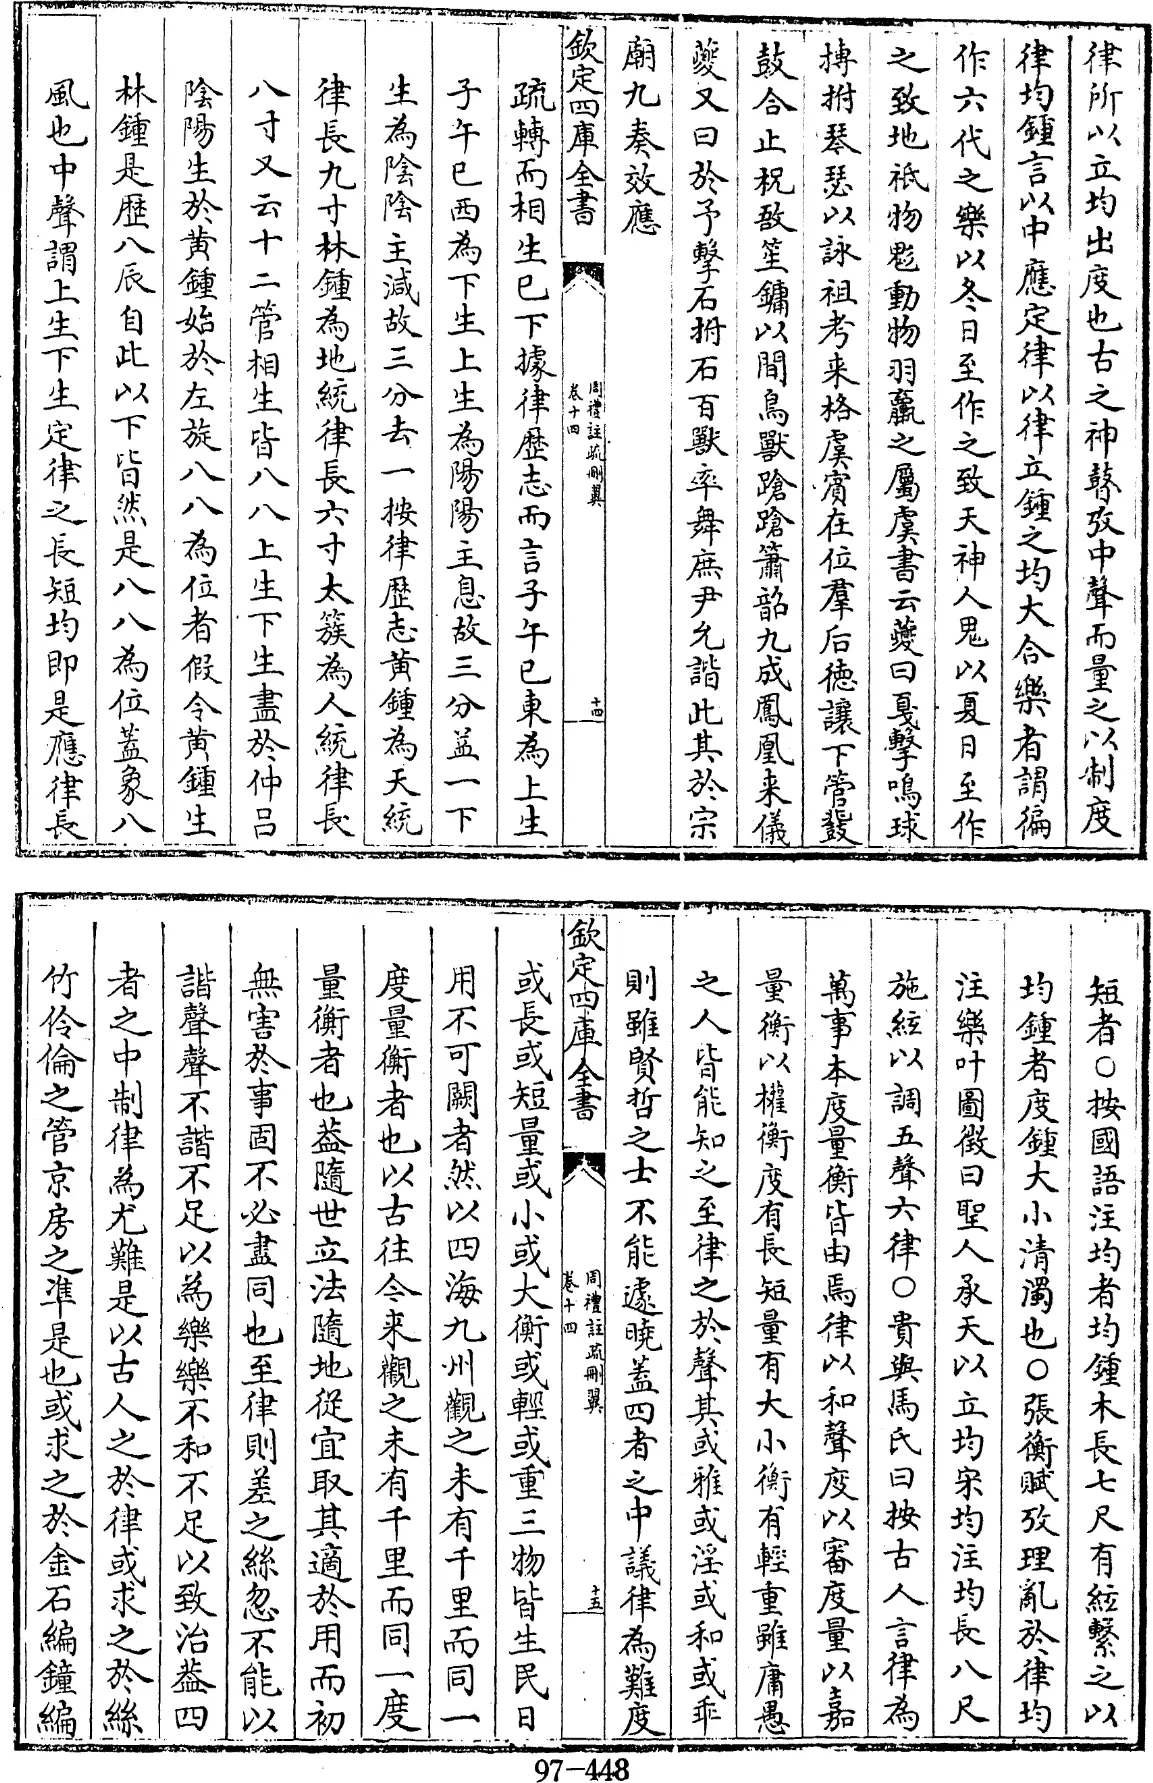 律所以立均出度也古之神瞽攷中聲而量之以制度
律均鍾言以中應定律以律立鍾之均大合樂者謂徧
作六代之樂以冬日至作之致天神人鬼以夏日至作
之致地祇物鬽動物羽臝之屬虞書云夔曰戛擊鳴球
搏拊琴瑟以詠祖考来格虞賓在位羣后德讓下管鼗
鼓合止柷敔笙鏞以間鳥獸蹌蹌簫韶九成鳳凰来儀
夔又曰於予擊石拊石百獸率舞庶尹允諧此其於宗
廟九奏效應
欽定四庫全書
周禮註疏刪翼
卷十四
十四
疏轉而相生已下據律歴志而言子午已東為上生
子午已西為下生上生為陽陽主息故三分益一下
生為陰陰主減故三分去一按律歴志黄鍾為天統
律長九寸林鍾為地統律長六寸太簇為人統律長
八寸又云十二管相生皆八八上生下生盡於仲呂
陰陽生於黄鍾始於左旋八八為位者假令黄鍾生
林鍾是歴八辰自此以下皆然是八八為位蓋象八
風也中聲謂上生下生定律之長短均即是應律長
短者○按國語注均者均鍾木長七尺有絃繫之以
均鍾者度鍾大小清濁也○張衡賦攷理亂於律均
注樂叶圖徴曰聖人承天以立均宋均注均長八尺
施絃以調五聲六律○貴與馬氏曰按古人言律為
萬事本度量衡皆由焉律以和聲度以審度量以嘉
量衡以權衡度有長短量有大小衡有輕重雖庸愚
之人皆能知之至律之於聲其或雅或淫或和或乖
則雖賢哲之士不能遽曉蓋四者之中議律為難度
欽定四庫全書
周禮註疏刪翼
卷十四
十五
或長或短量或小或大衡或輕或重三物皆生民日
用不可闕者然以四海九州觀之未有千里而同一
度量衡者也以古往今来觀之未有千里而同一度
量衡者也葢隨世立法隨地從宜取其適於用而初
無害於事固不必盡同也至律則差之絲忽不能以
諧聲聲不諧不足以為樂樂不和不足以致治葢四
者之中制律為尤難是以古人之於律或求之於絲
竹伶倫之管京房之凖是也或求之於金石編鐘編
97-448